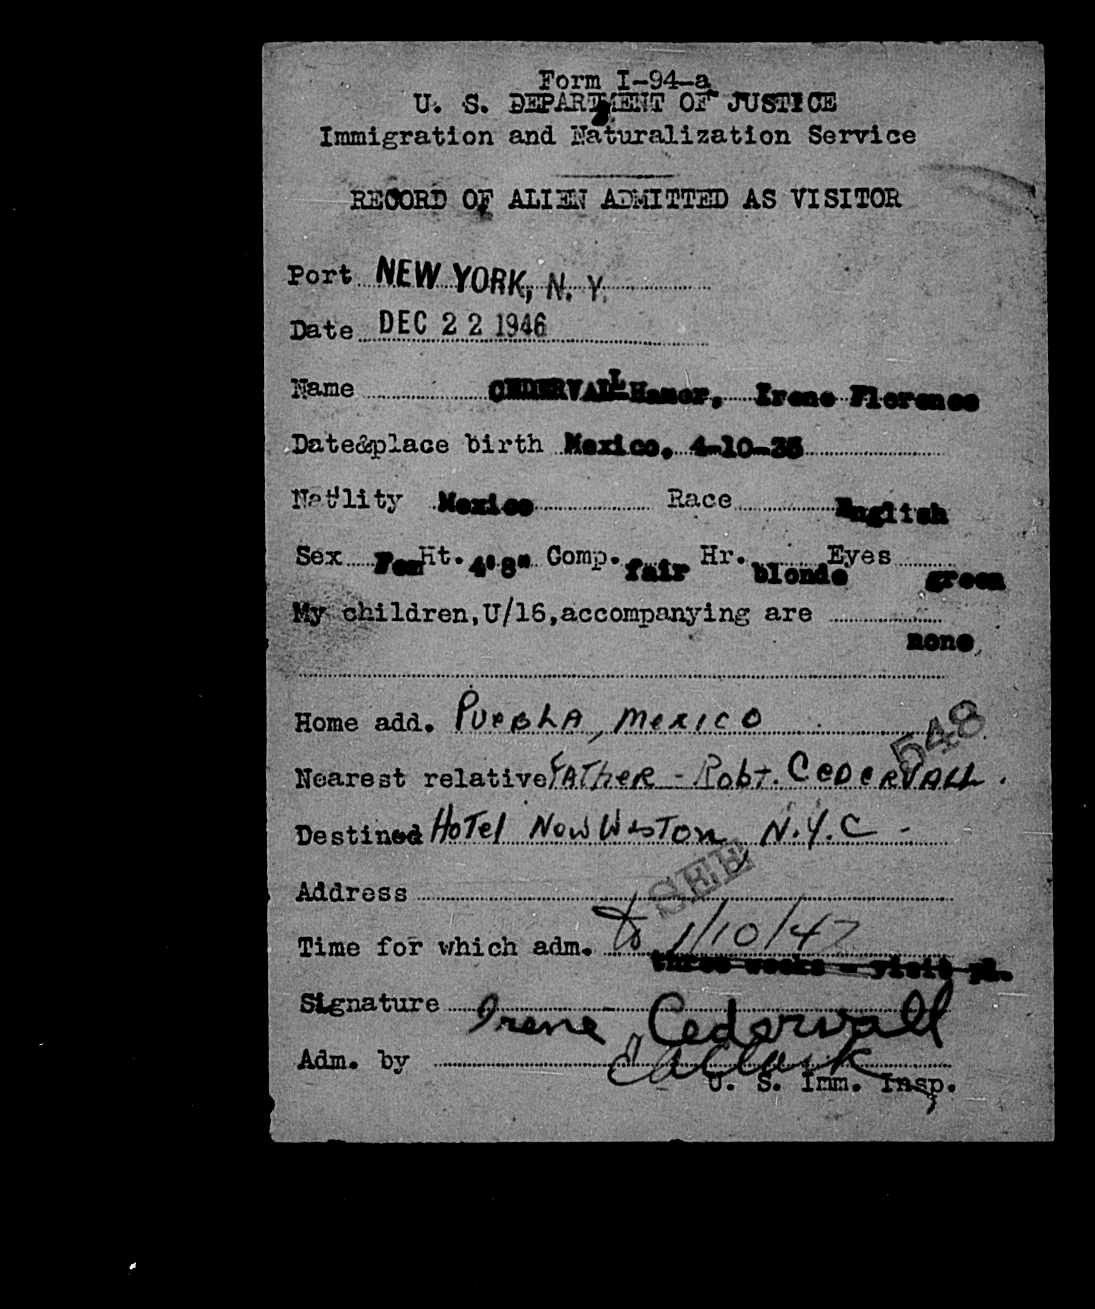 Form I-94-a
U. S. DEPARTMENT OF JUSTICE
Immigration and Naturalization Service
RECORD OF ALIEN ADMITTED AS VISITOR
Port NEW YORK, N. Y.
Date DEC 22 1946
Name CEDERVALL Hamer, Irene Florence
Date&place birth Mexico, 4-10-35
Nat'lity Mexico Race English
Sex Fem Ht. 4'8" Comp. fair Hr. blonde Eyes green
My children,U/16,accompanying are
none
Home add. PUEBLA, MEXICO
548
Nearest relative FATHER - Robt. CEDERVALL.
Destined HOTEL NEW WESTON, N.Y.C -
SEE
Address
Time for which adm. to 1/10/47
three weeks - visit pl.
Signature Irene Cedervall
Adm. by EA Clark
U. S. Imm. Insp.